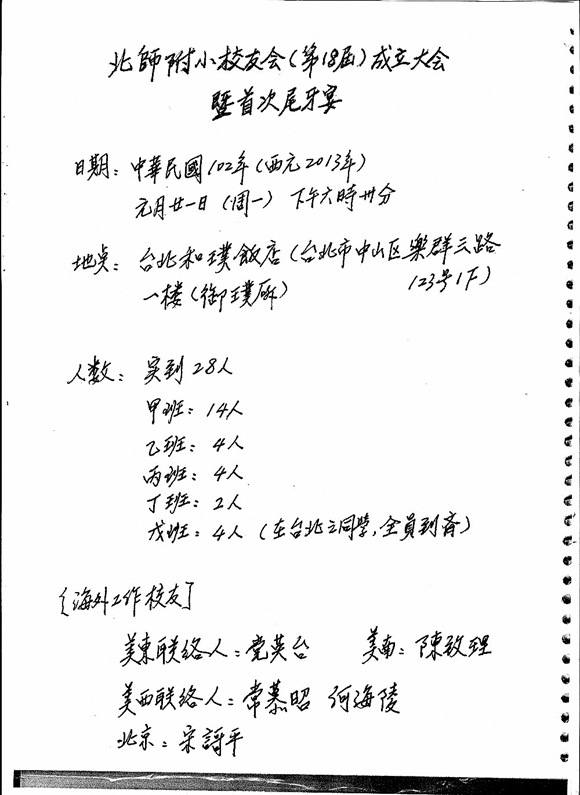 北師附小校友会(第18届)成立大会
暨首次尾牙宴
日期：中華民國102年(西元2013年)
元月廿一日(周一) 下午六時卅分
地点：台北和璞飯店(台北市中山区樂群三路
一楼(御璞厛) 123号1F)
人数：実到28人
甲班：14人
乙班：4人
丙班：4人
丁班：2人
戊班：4人(在台北之同學,全員到斉)
[海外工作校友]
美東联络人：党英台 美南：陳致理
美西联络人：常慕昭 何海陵
北京：宋詩平